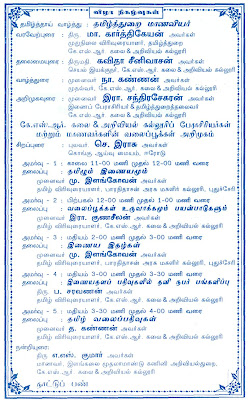 விழா நிகழ்வுகள்
தமிழ்த்தாய் வாழ்த்து : தமிழ்த்துறை மாணவியர்
வரவேற்புரை : திரு. மா. கார்த்திகேயன் அவர்கள்
முதுநிலை விரிவுரையாளர், தமிழ்த்துறை
கே.எஸ்.ஆர். கலை & அறிவியல் கல்லூரி
தலைமையுரை : திருமதி கவிதா சீனிவாசன் அவர்கள்
செயல் இயக்குநர், கே.எஸ்.ஆர். கலை & அறிவியல் கல்லூரி
வாழ்த்துரை : முனைவர் நா. கண்ணன் அவர்கள்
முதல்வர், கே.எஸ்.ஆர். கலை & அறிவியல் கல்லூரி
அறிமுகவுரை : முனைவர் இரா. சந்திரசேகரன் அவர்கள்
இணைப் பேராசிரியர் & தமிழ்த்துறைத்தலைவர்
கே.எஸ்.ஆர். கலை & அறிவியல் கல்லூரி
கே.எஸ்.ஆர். கலை & அறிவியல் கல்லூரிப் பேராசிரியர்கள்
மற்றும் மாணவர்களின் வலைப்பூக்கள் அறிமுகம்
சிறப்புரை : புலவர் செ. இராசு அவர்கள்
கொங்கு ஆய்வு மையம், ஈரோடு
அமர்வு - 1 : காலை 11-00 மணி முதல் 12-00 மணி வரை
தலைப்பு : தமிழும் இணையமும்
முனைவர் மு. இளங்கோவன் அவர்கள்
தமிழ் விரிவுரையாளர், பாரதிதாசன் அரசு மகளிர் கல்லூரி, புதுச்சேரி
அமர்வு - 2 : பிற்பகல் 12-00 மணி முதல் 1-00 மணி வரை
தலைப்பு : வலைப்பூக்கள் உருவாக்கமும் பயன்பாடுகளும்
முனைவர் இரா. குணசீலன் அவர்கள்
தமிழ் விரிவுரையாளர், கே.எஸ்.ஆர். கலை & அறிவியல் கல்லூரி
அமர்வு - 3 : மதியம் 2-00 மணி முதல் 3-00 மணி வரை
தலைப்பு : இணைய இதழ்கள்
முனைவர் மு. இளங்கோவன் அவர்கள்
தமிழ் விரிவுரையாளர், பாரதிதாசன் அரசு மகளிர் கல்லூரி, புதுச்சேரி
அமர்வு - 4 : மதியம் 3-00 மணி முதல் 3-30 மணி வரை
தலைப்பு : இணையதளப் பதிவுகளில் தனி நபர் பங்களிப்பு
திரு. ப. சரவணன் அவர்கள்
தமிழ் விரிவுரையாளர், கே.எஸ்.ஆர். கலை & அறிவியல் கல்லூரி
அமர்வு - 5 : மதியம் 3-30 மணி முதல் 4-00 மணி வரை
தலைப்பு : தமிழ் வலைப்பதிவுகள்
முனைவர் த. கண்ணன் அவர்கள்
தமிழ் விரிவுரையாளர், கே.எஸ்.ஆர். கலை & அறிவியல் கல்லூரி
நன்றியுரை :
திரு. எ.எஸ். குமார் அவர்கள்
கே.எஸ்.ஆர். கலை & அறிவியல் கல்லூரி
நாட்டுப் பண்